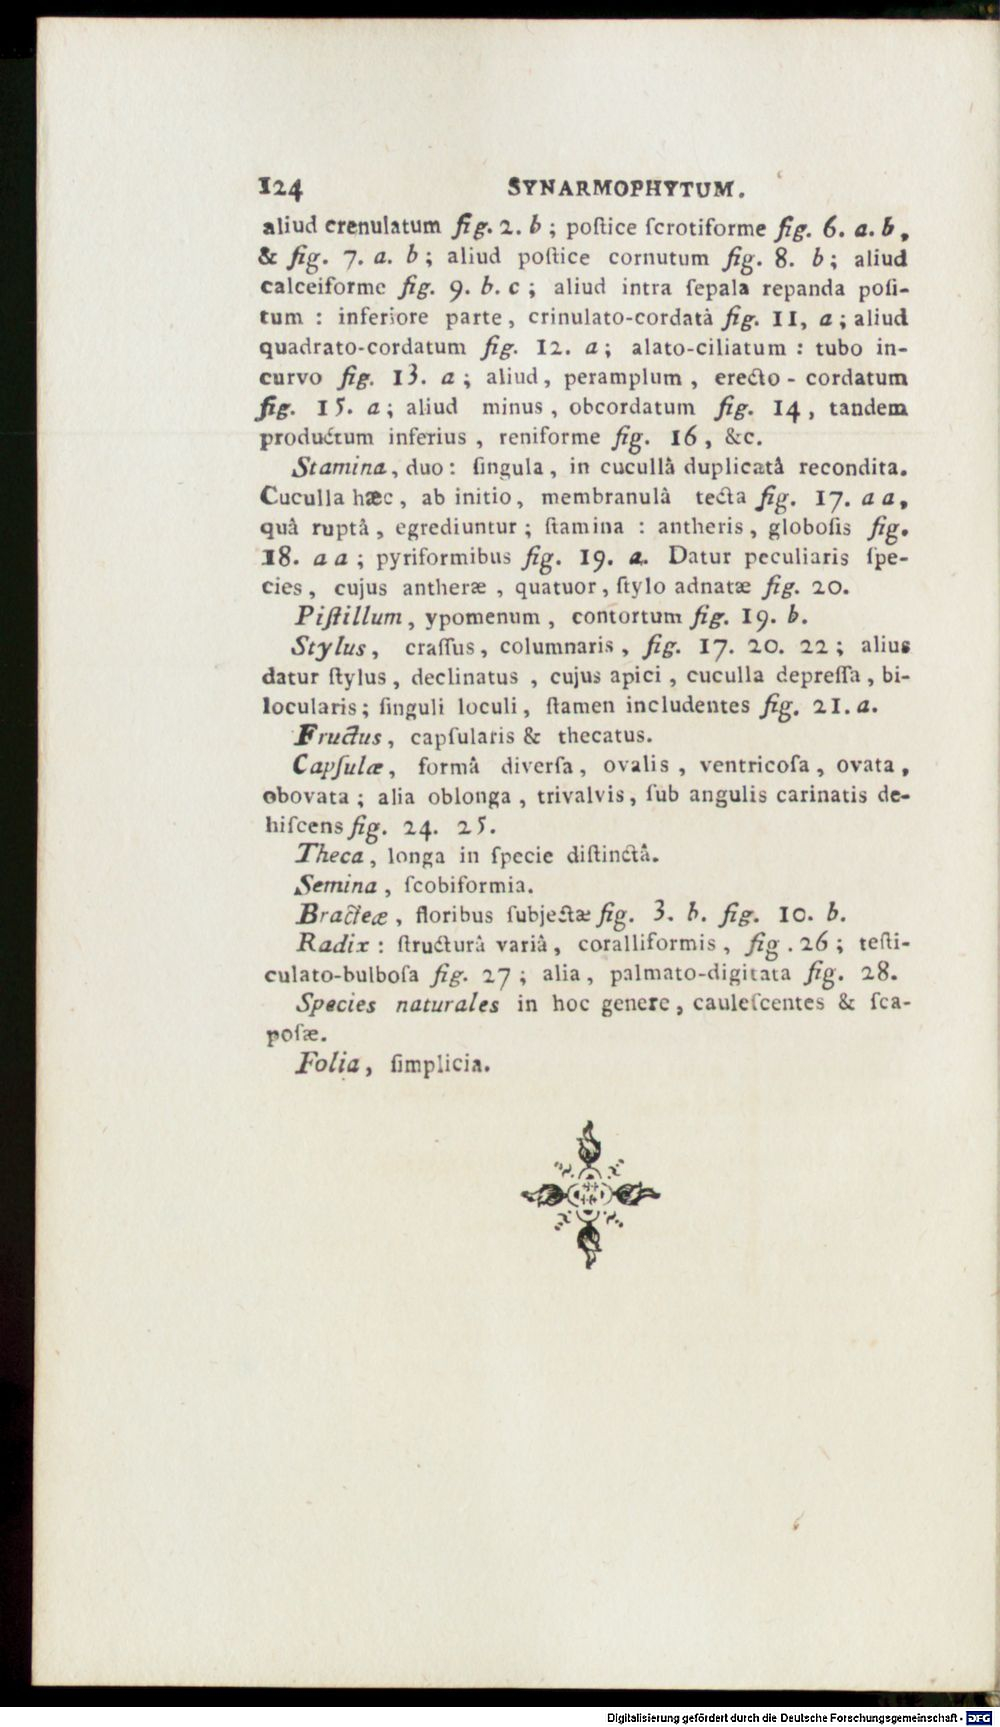 124 SYNARMOPHYTUM.
aliud crenulatum fig. 2. b ; poſtice ſcrotiforme fig. 6. a. b ,
& fig. 7. a. b ; aliud poſtice cornutum fig. 8. b ; aliud
calceiforme fig. 9. b. c ; aliud intra ſepala repanda poſi-
tum : inferiore parte , crinulato-cordatâ fig. 11, a ; aliud
quadrato-cordatum fig. 12. a ; alato-ciliatum : tubo in-
curvo fig. 13. a ; aliud , peramplum , erecto - cordatum
fig. 15. a ; aliud minus , obcordatum fig. 14 , tandem
productum inferius , reniforme fig. 16 , &c.
Stamina , duo : ſingula , in cucullâ duplicatâ recondita.
Cuculla hæc , ab initio , membranulâ tecta fig. 17. a a ,
quâ ruptâ , egrediuntur ; ſtamina : antheris , globoſis fig.
18. a a ; pyriformibus fig. 19. a. Datur peculiaris ſpe-
cies , cujus antheræ , quatuor , ſtylo adnatæ fig. 20.
Piſtillum , ypomenum , contortum fig. 19. b.
Stylus , craſſus , columnaris , fig. 17. 20. 22 ; alius
datur ſtylus , declinatus , cujus apici , cuculla depreſſa , bi-
locularis ; ſinguli loculi , ſtamen includentes fig. 21. a.
Fructus , capſularis & thecatus.
Capſulæ , formâ diverſa , ovalis , ventricoſa , ovata ,
obovata ; alia oblonga , trivalvis , ſub angulis carinatis de-
hiſcens fig. 24. 25.
Theca , longa in ſpecie diſtinctâ.
Semina , ſcobiformia.
Bracteæ , floribus ſubjectæ fig. 3. b. fig. 10. b.
Radix : ſtructurâ variâ , coralliformis , fig . 26 ; teſti-
culato-bulboſa fig. 27 ; alia , palmato-digitata fig. 28.
Species naturales in hoc genere , cauleſcentes & ſca-
poſæ.
Folia , ſimplicia.
Digitalisierung gefördert durch die Deutsche Forschungsgemeinschaft - DFG